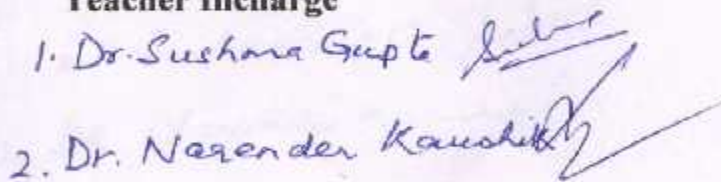 Teacher Incharge
1. Dr. Sushma Gupta
2. Dr. Narender Kaushik